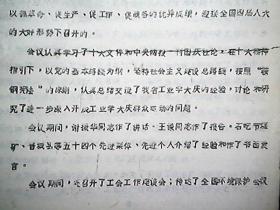 以抓革命、促生产、促工作、促战备的优异成绩，迎接全国四届人大
的大好形势下召开的。
会议认真学习了十大文件和中央转发一
指引下，以党的基本路线为纲，坚持社会主义建设总路线，按照"
钢宪法"的原则，认真总结交流了我省工业学大庆的经验，讨论和研
究了进一步深入开展工业学大庆群众运动的问题。
会议期间，谢振华同志作了讲话，王谦同志作了报告。石圪节煤
矿、晋城县等五十四个先进集体、先进个人介绍了经验和作了书面发
言。
会议期间，还召开了工会工作座谈会；传达了全国环境保护会议